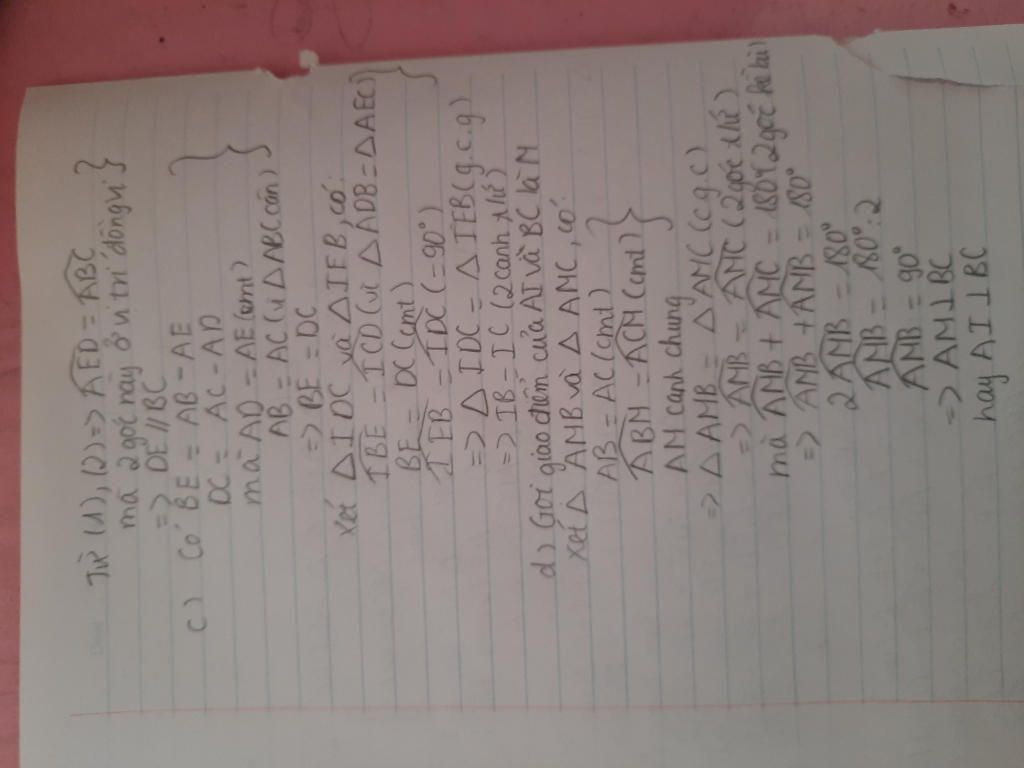 Từ (1), (2) => AED = ABC }
mà 2 góc này ở vị trí đồng vị }
=> DE // BC
c) Có BE = AB - AE }
DC = AC - AD
mà AD = AE (cmt) }
AB = AC (vì △ ABC cân)
=> BE = DC
xét △ IDC và △ IEB, có:
IBE = ICD (vì △ ADB = △ AEC) }
BE = DC (cmt)
IEB = IDC (= 90°) }
=> △ IDC = △ IEB (g.c.g)
=> IB = IC (2 cạnh t/ứ)
d) Gọi giao điểm của AI và BC là M
xét △ AMB và △ AMC, có:
AB = AC (cmt) }
ABM = ACM (cmt)
AM cạnh chung }
=> △ AMB = △ AMC (c.g.c)
=> AMB = AMC (2 góc t/ứ)
mà AMB + AMC = 180° (2 góc kề bù)
=> AMB + AMB = 180°
2 AMB = 180°
AMB = 180° : 2
AMB = 90°
=> AM ⊥ BC
hay AI ⊥ BC